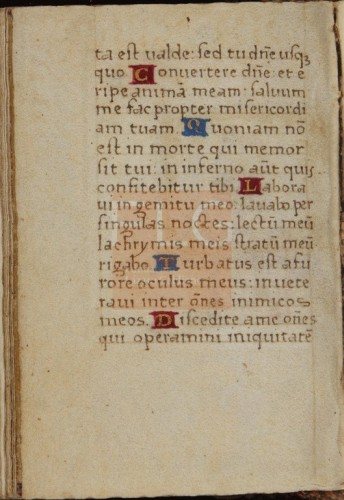 ta est ualde: sed tu dn̄e usqꝫ
quo. Conuertere dn̄e: et e
ripe animā meam: saluum
me fac propter misericordi
am tuam. Quoniam nō
est in morte qui memor
sit tui: in inferno aūt quis
confitebitur tibi. Labora
ui in gemitu meo: lauabo per
singulas noctes: lectū meū
lachrymis meis stratū meū
rigabo. Turbatus est a fu
rore oculus meus: inuete
raui inter oēs inimicos
meos. Discedite a me oēs
qui operamini iniquitatē